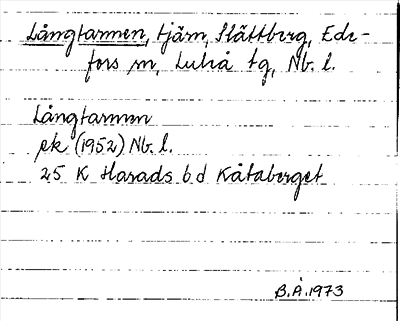 Långtarmen, tjärn, Slättberg, Ede-
fors sn, Luleå tg, Nb. l.
Långtarmen
ek (1952) Nb. l.
25 K Harads b d Kåtaberget
B.Å. 1973